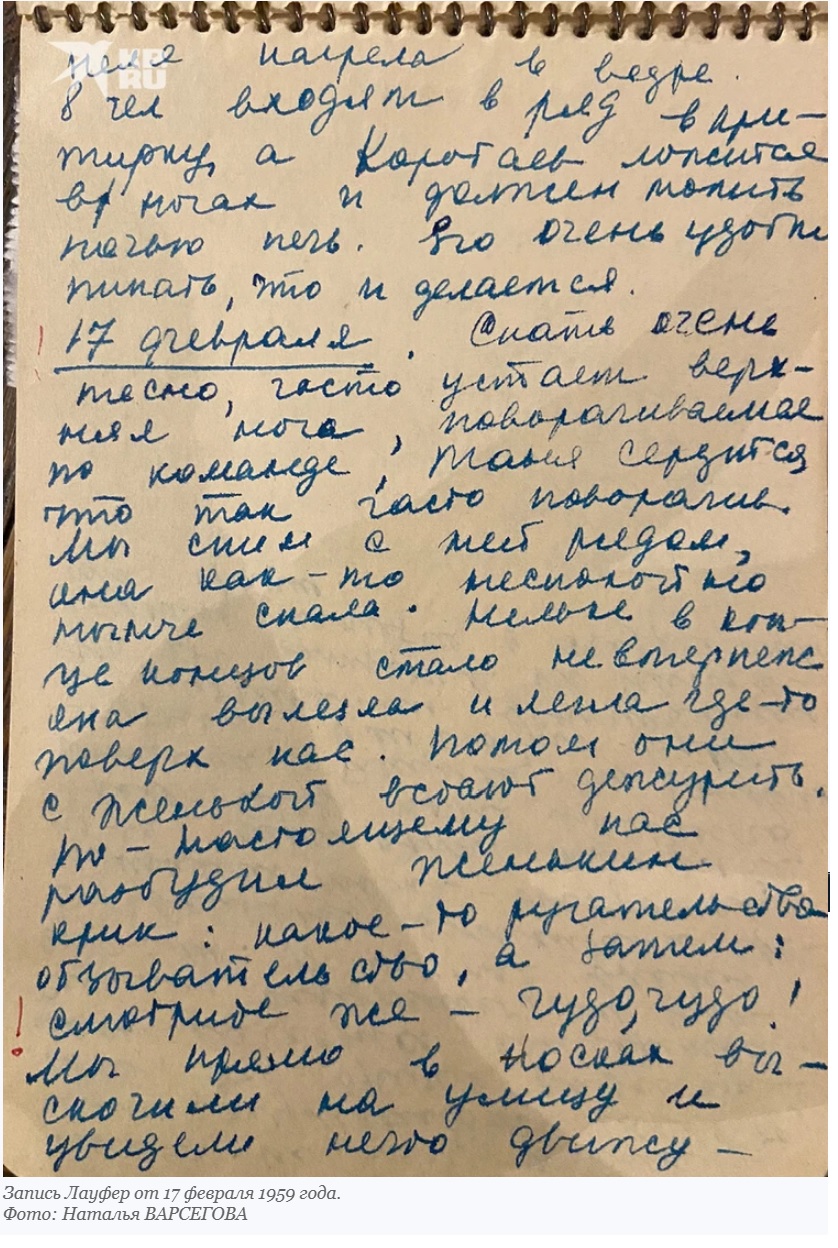 KP.RU
Неля нагрела в ведре.
8 чел входят в ряд в при-
тирку, а Коротаев ложится
в ногах и должен топить
ночью печь. Его очень удобно
пинать, что и делается.
17 февраля. Спать очень
тесно, часто устает верх-
няя нога, поворачиваемся
по команде, Таня сердится
что так часто поворачив.
Мы спим с ней рядом,
она как-то неспокойно
нынче спала. Нельке в кон-
це концов стало невтерпеж
она вылезла и легла где-то
поверх нас. Потом они
с Женькой встают дежурить.
По-настоящему нас
разбудил Женькин
крик: какое-то ругательство
обзывательство, а затем:
смотрите же – чудо, чудо!
Мы прямо в носках вы-
скочили на улицу и
увидели нечто движу-
Запись Лауфер от 17 февраля 1959 года.
Фото: Наталья ВАРСЕГОВА